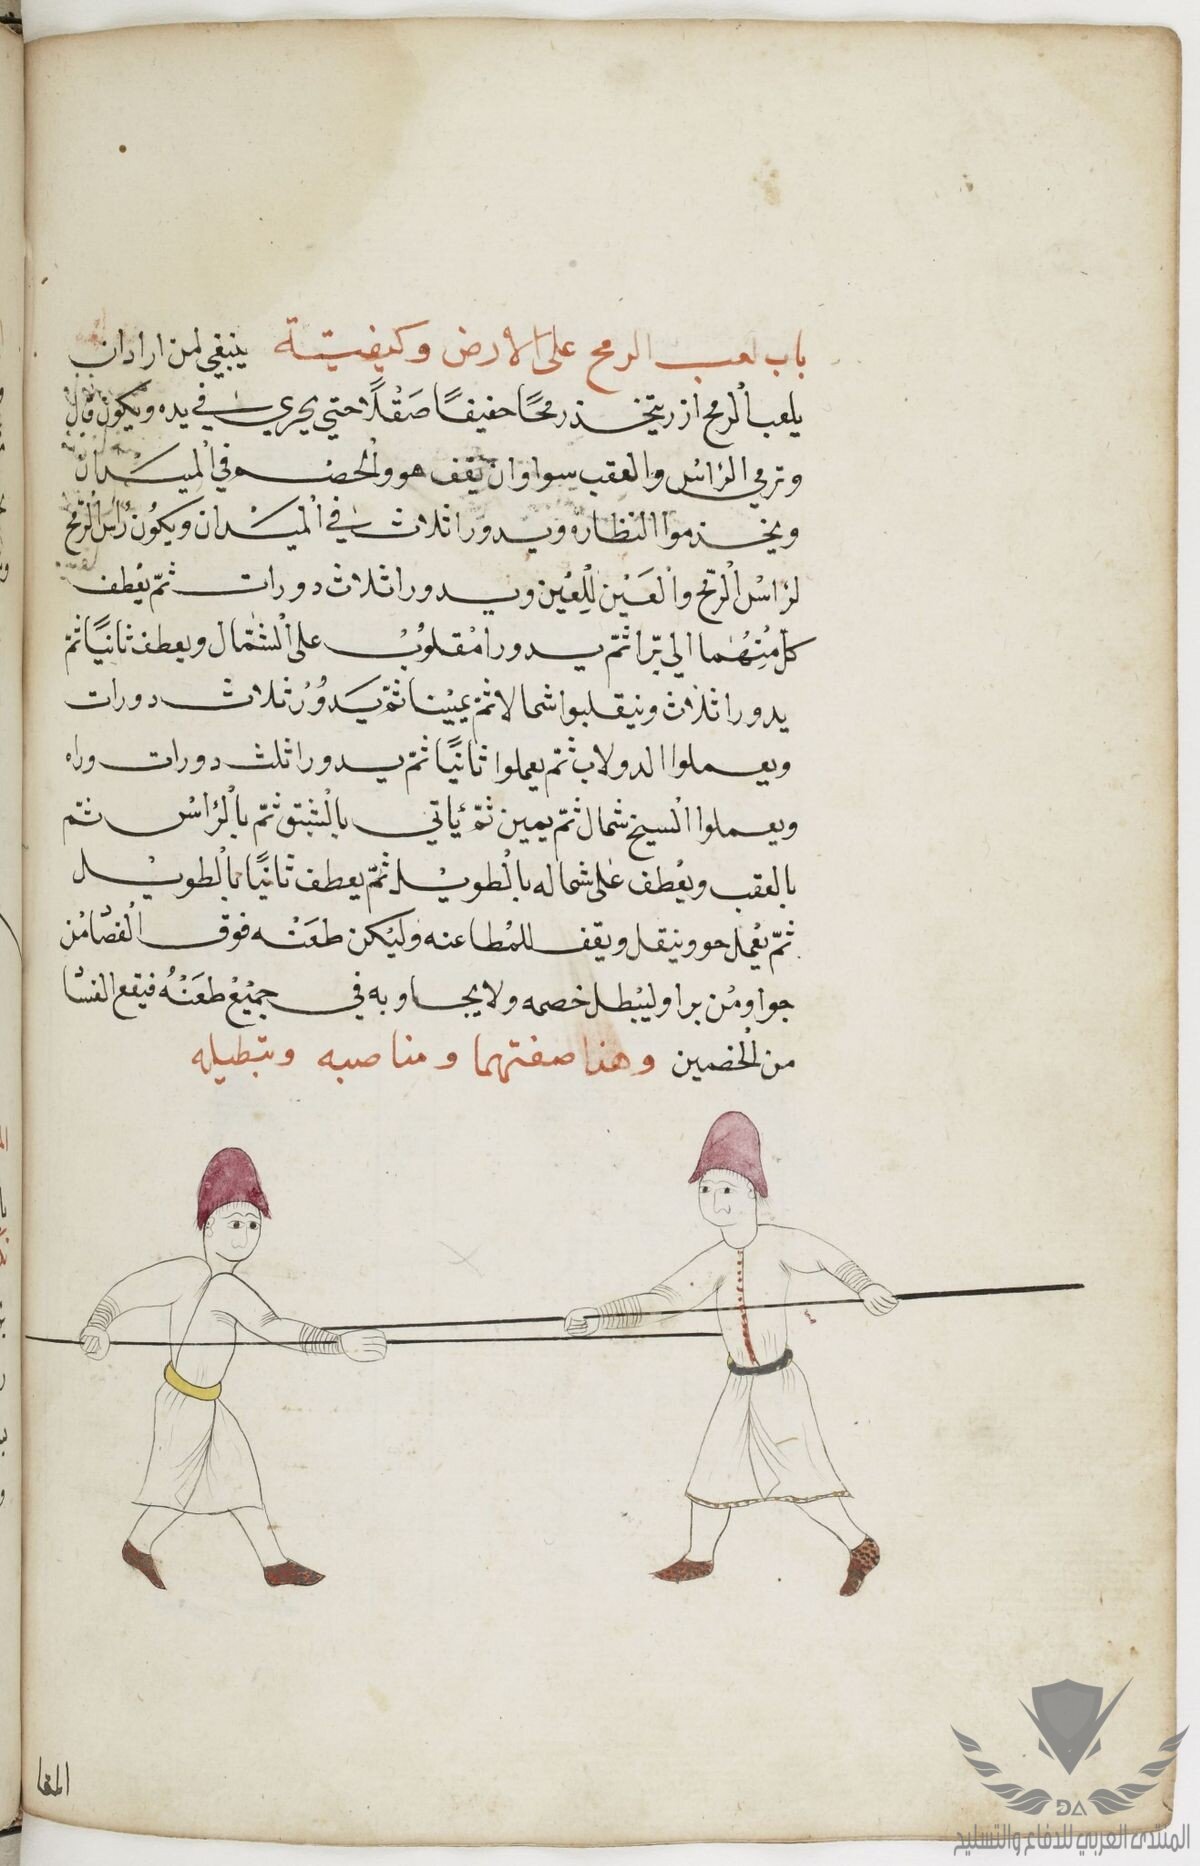 باب لعب الرمح على الارض وكيفيتة ينبغي لمن اراد ان
يلعب الرمح ان يتخذ رمحًا خفيفًا صَقْلًا حتي يجري في يده ويكون
وترمي الراس والعقب سوا وان يقف هو والخصم في الميدان
ويخدموا النظاره ويدورا ثلاث في الميدان ويكون راس الرمح
لراس الرمح والعَيْن للعين ويدورا ثلاث دورات ثمّ يعْطف
كل منهُما الي برّا ثمّ يدورا مقلوب على الشمال ويعطف ثانيًا ثمّ
يدورا ثلاث وينقلبوا شمالا ثمّ يمينا ثمّ يَدوُرُ ثلاث دورات
ويعملوا الدولاب ثمّ يعملوا ثانيًا ثمّ يدورا ثلث دورات وراه
ويعملوا السيخ شمال ثمّ يمين ثمّ ياتي بالشبتق ثمّ بالراس ثمّ
بالعقب ويعْطف على شماله بالطويل ثمّ يعطف ثانيًا بالطويل
ثمّ يعْمل حو وينقل ويقف للمطاعنه وليَكن طعَنْه فوق القصَا من
جوا ومْن برا وليبْطل خصمه ولا يجاوبه في جميْعْ طعَنْهُ فيقع الفسَا
من الخصمين وهذا صفتهما ومناصبه وتبطيله
المقا
DA
المنتدى العربي للدفاع والتسليح